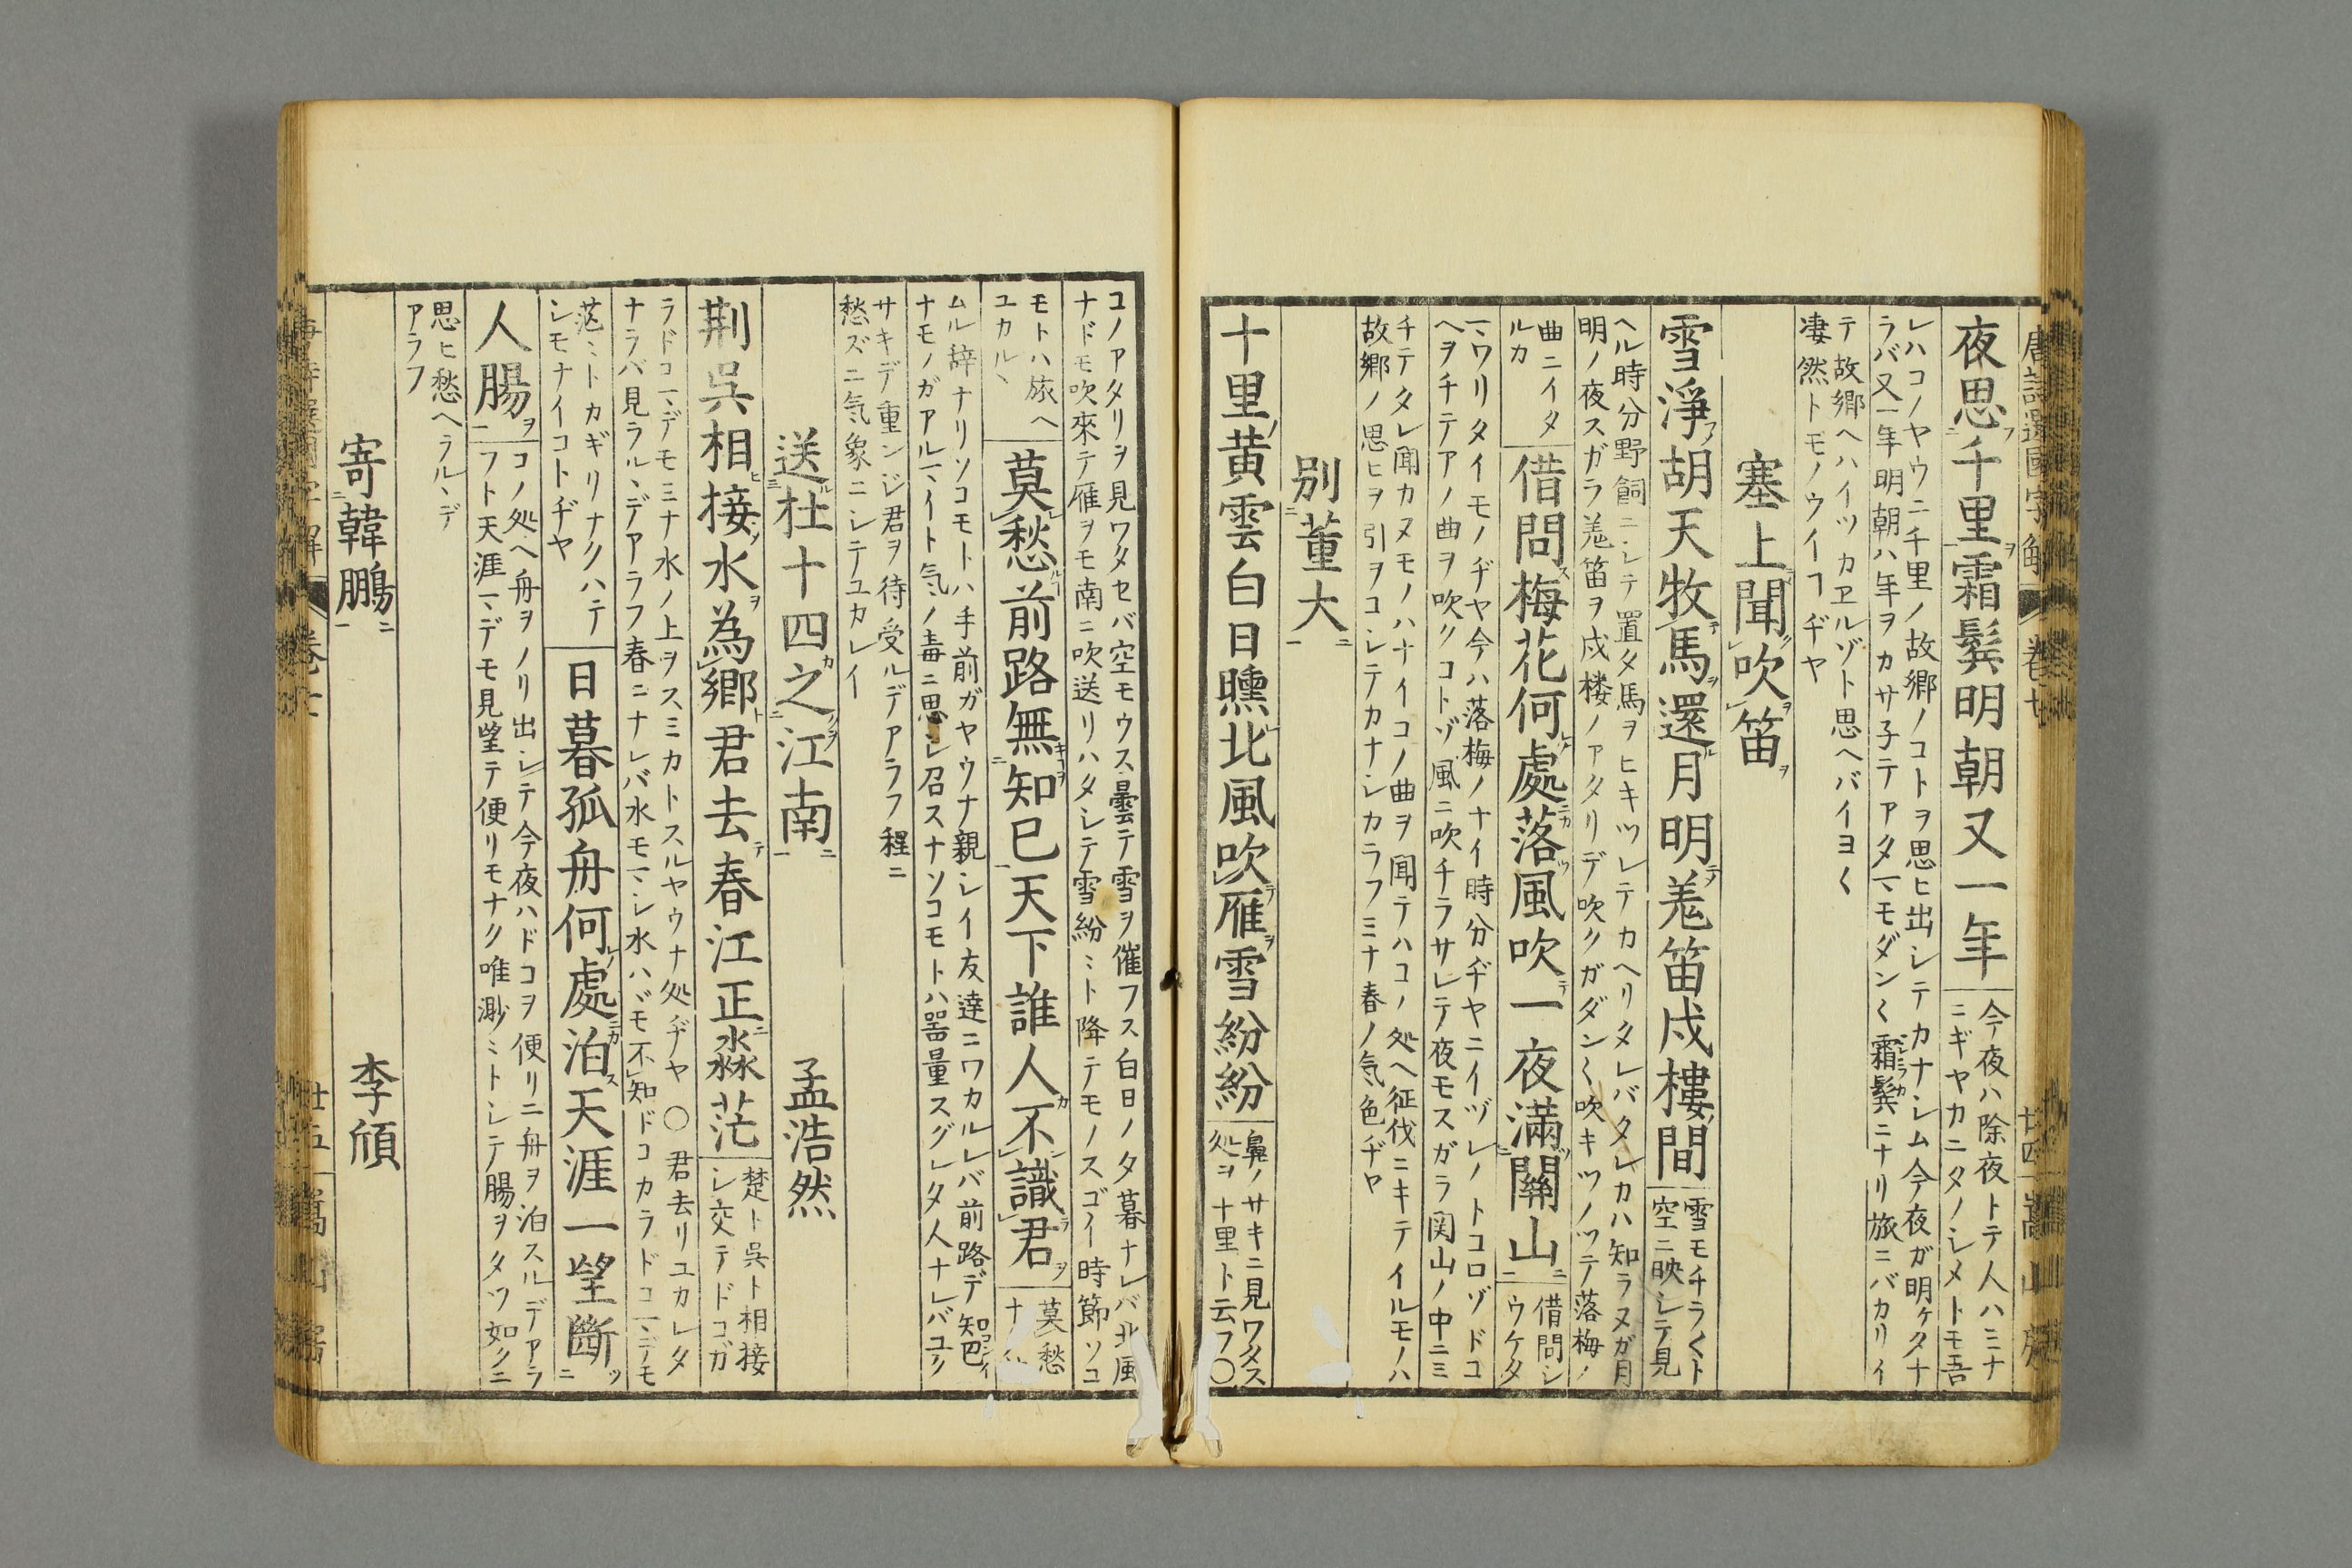 唐詩選國字解 巻七 廿四 嵩山房
夜思千里霜鬂明朝又一年
今夜ハ除夜トテ人ハミナ
ニギヤカニタノシメトモ吾
レハコノヤウニ千里ノ故郷ノコトヲ思ヒ出シテカナシム今夜ガ明ケタナ
ラバ又一年明朝ハ年ヲカサ子テアタマモダン〱霜鬂ニナリ旅ニバカリイ
テ故郷ヘハイツカヱルゾト思ヘバイヨ〱
凄然トモノウイヿヂヤ
塞上聞吹笛
雪淨胡天牧馬還月明羌笛戍樓間
雪モチラ〱ト
空ニ映シテ見
ヘル時分野飼ニシテ置タ馬ヲヒキツレテカヘリタレバタレカハ知ラヌガ月
明ノ夜スガラ羌笛ヲ戍楼ノアタリデ吹クガダン〱吹キツノツテ落梅ノ
曲ニイタ
ルカ
借問梅花何處落風吹一夜滿關山
借問シ
ウケタ
マワリタイモノヂヤ今ハ落梅ノナイ時分ヂヤニイヅレノトコロゾドコ
ヘヲチテアノ曲ヲ吹クコトゾ風ニ吹チラサレテ夜モスガラ関山ノ中ニミ
チテタレ聞カヌモノハナイコノ曲ヲ聞テハコノ処ヘ征伐ニキテイルモノハ
故郷ノ思ヒヲ引ヲコシテカナシカラフミナ春ノ気色ヂヤ
別董大
十里黄雲白日曛北風吹雁雪紛紛
鼻ノサキニ見ワタス
処ヲ十里ト云フ〇
コノアタリヲ見ワタセバ空モウス曇テ雪ヲ催フス白日ノタ暮ナレバ北風
ナドモ吹來テ雁ヲモ南ニ吹送リハタシテ雪紛ミト降テモノスゴイ時節ソコ
モトハ旅ヘ
ユカルヽ
莫愁前路無知己天下誰人不識君
莫愁
ム辞ナリソコモトハ手前ガヤウナ親シイ友達ニワカルレバ前路デ知己
ナモノガアルマイト気ノ毒ニ思シ召スナソコモトハ器量スグレタ人ナレバユク
サキデ重ンジ君ヲ待受ルデアラフ程ニ
愁ズニ気象ニシテユカレイ
送杜十四之江南 孟浩然
荆呉相接水為郷君去春江正淼茫
楚ト呉ト相接
シ交テドコガ
ラドコマデモミナ水ノ上ヲスミカトスルヤウナ処ヂヤ〇君去リユカレタ
ナラバ見ラルヽデアラフ春ニナレバ水モマシ水ハヾモ不知ドコカラドコマデモ
茫ミトカギリナクハテ
シモナイコトヂヤ
日暮孤舟何處泊天涯一望斷
人腸
コノ処ヘ舟ヲノリ出シテ今夜ハドコヲ便リニ舟ヲ泊スルデアラ
フト天涯マデモ見望テ便リモナク唯渺ミトシテ腸ヲタツ如クニ
思ヒ愁ヘラルヽデ
アラフ
寄韓鵬 李頎